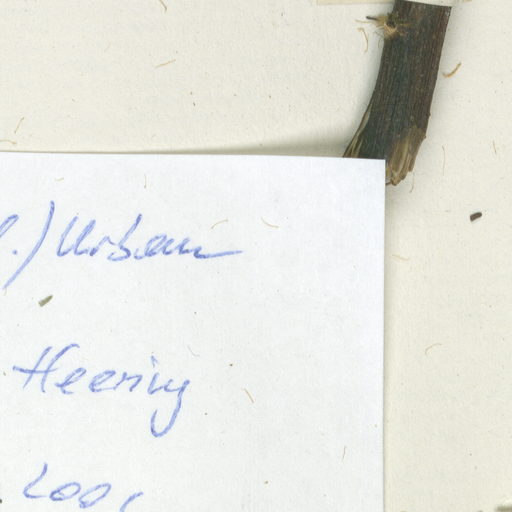 .) Urban
Heering
200